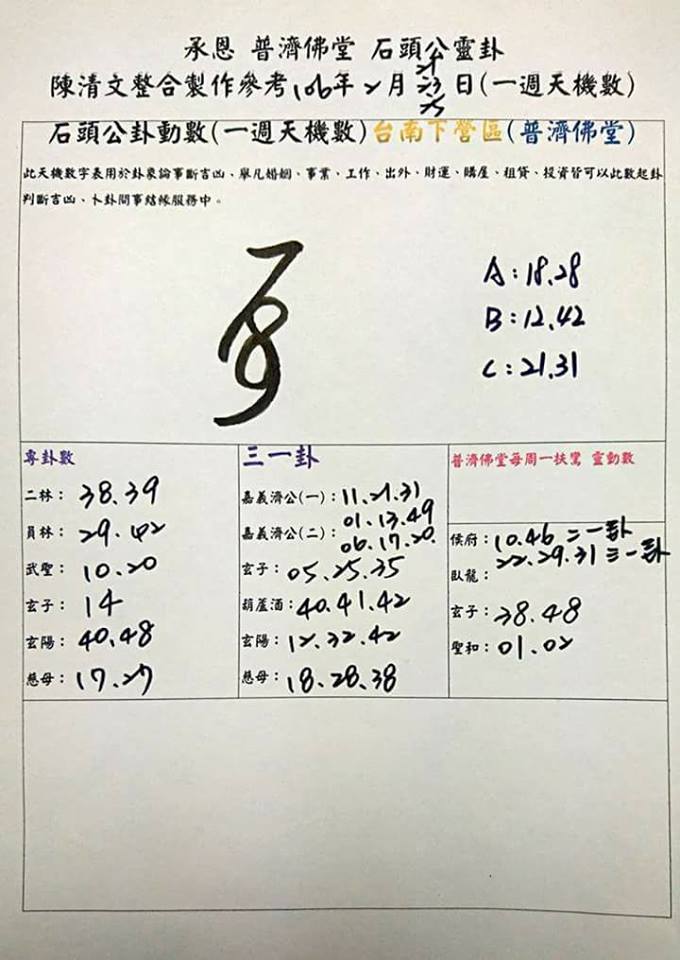 承恩 普濟佛堂 石頭公靈卦
陳清文整合製作參考106年2月21 23 25日(一週天機數)
石頭公卦動數(一週天機數)台南下營區(普濟佛堂)
此天機數字表用於卦象論事斷吉凶、舉凡婚姻、事業、工作、出外、財運、購屋、租貸、投資皆可以此數起卦
判斷吉凶、卜卦問事結緣服務中。
A:18.28
B:12.42
C:21.31
專卦數
二林:38.39
員林:29.42
武聖:10.20
玄子:14
玄陽:40.48
慈母:17.27
三一卦
嘉義濟公(一):11.21.31
嘉義濟公(二):01.13.49
06.17.20.
玄子:05.25.35
葫蘆酒:40.41.42
玄陽:12.32.42
慈母:18.28.38
普濟佛堂每周一扶鸞 靈動數
侯府:10.46 二一卦
22.29.31 三一卦
臥龍:
玄子:38.48
聖和:01.02